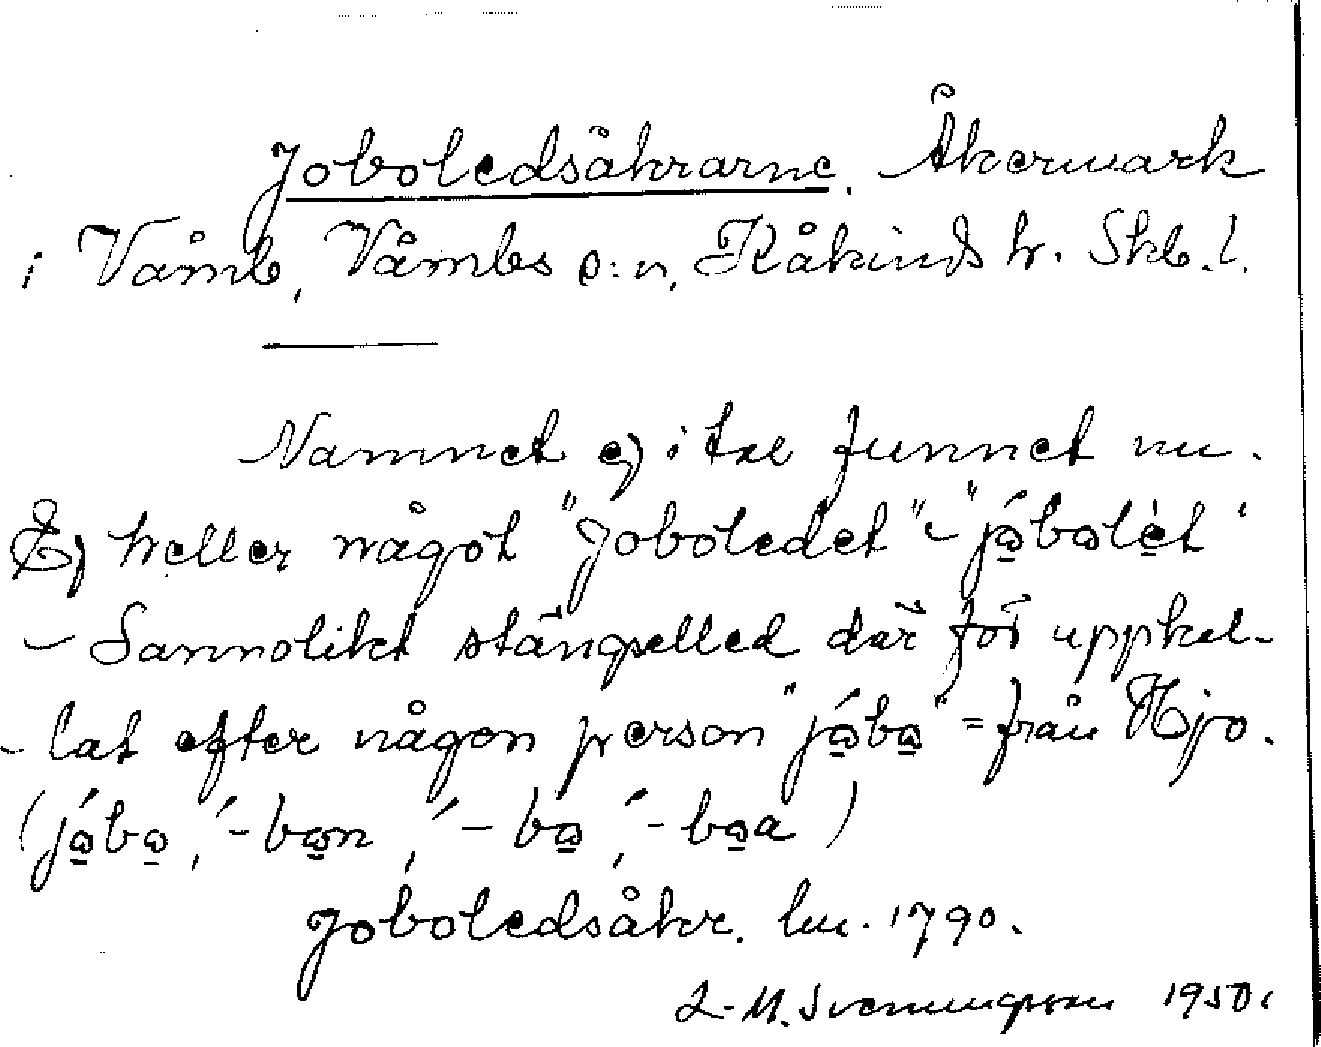 Joboledsåkrarne. Åkermark
i Våmb, Våmbs s:n, Kåkinds hr. Skb. l.
Namnet ej i tal funnet nu.
Ej heller något "Joboledet" - "jó̲bo̲lèt"
- Sannolikt stängselled där för uppkal-
- lat efter någon person "jó̲bo̲" = från Hjo.
(jó̲bo̲, ́-bo̲n, ́-bo̲, ́-bo̲a)
Joboledsåkr. lm. 1790.
L-M. Svenungsson 1950.